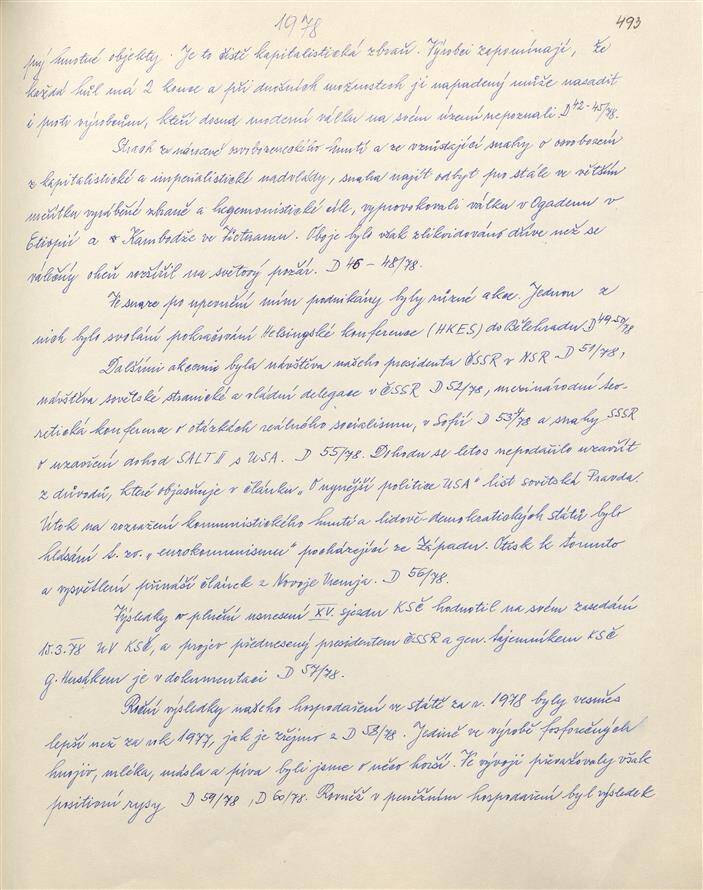 1978
493
jiný hmotné objekty. Je to čistě kapitalistická zbraň. Výrobci zapomínají, že
každá hůl má 2 konce a při dnešních možnostech ji napadený může nasadit
i proti výrobcům, kteří dosud moderní válku na svém území nepoznali. D 42-45/78.
Strach ze národně osvobozeneckého hnutí a ze vzrůstající snahy o osvobození
z kapitalistické a imperialistické nadvlády, snaha najít odbyt pro stále ve větším
měřítku vyráběné zbraně a hegemonistické cíle, vyprovokovali válku v Ogadenu v
Etiopii a v Kambodže ve Vietnamu. Oboje bylo však zlikvidováno dříve než se
válečný oheň rozšířil na světový požár. D 46-48/78.
Ve snaze po upevnění míru podnikány byly různé akce. Jednou z
nich bylo svolání pokračování Helsingské konference (HKES) do Bělehradu D 49-50/78
Dalšími akcemi byla návštěva našeho presidenta ČSSR v NSR D 51/78,
návštěva sovětské stranické a vládní delegace v ČSSR D 52/78, mezinárodní teo-
retická konference o otázkách reálného socialismu, v Sofii D 53/78 a snahy SSSR
o uzavření dohod SALT II s USA. D 55/78. Dohodu se letos nepodařilo uzavřít
z důvodů, které objasňuje v článku „O nynější politice USA" list sovětská Pravda.
Útok na rozražení komunistického hnutí a lidově demokratických států bylo
hlásání t. zv. „eurokomunismu" pocházející ze Západu. Otisk k tomuto
a vysvětlení přináší článek z Novoje Vremja. D 56/78.
Výsledky v plnění usnesení XV. sjezdu KSČ hodnotil na svém zasedání
15.3.78 ÚV KSČ, a projev přednesený presidentem ČSSR a gen. tajemníkem KSČ
G. Husákem je v dokumentaci D 57/78.
Roční výsledky našeho hospodaření ve státě za r. 1978 byly vesměs
lepší než za rok 1977, jak je zřejmo z D 58/78. Jedině ve výrobě fosforečných
hnojiv, mléka, másla a piva byli jsme o něco horší. Ve vývoji převažovaly však
positivní rysy D 59/78, D 60/78. Rovněž v peněžním hospodaření byl výsledek